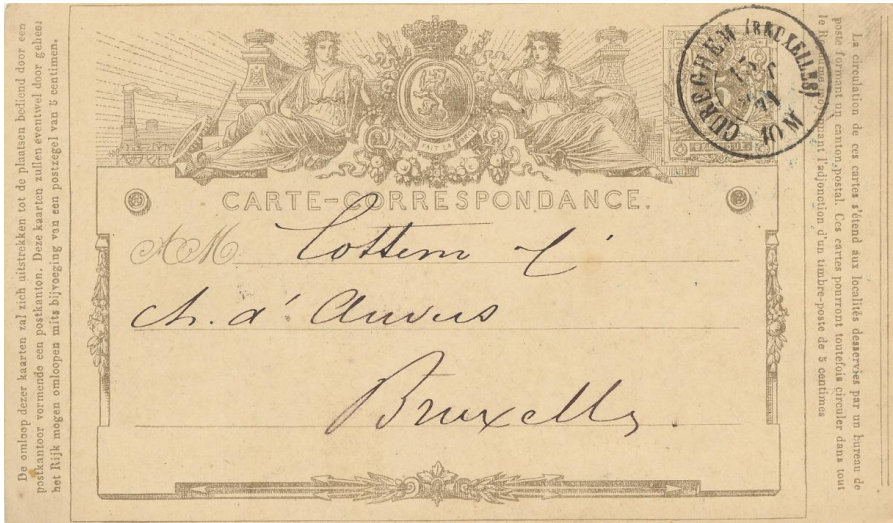 De omloop dezer kaarten zal zich uitstrekken tot de plaatsen bediend door een
postkantoor vormende een postkanton. Deze kaarten zullen eventwel door geheel
het Rijk mogen omloopen mits bijvoeging van een postzegel van 5 centimen.
FAIT LA
CUREGHEM (BRUXELLES)
5
10 M
CARTE-CORRESPONDANCE.
A M Cottem
ch. d'Anvers
Bruxelles.
La circulation de ces cartes s'étend aux localités desservies par un bureau de
poste formant un canton postal. Ces cartes pourront toutefois circuler dans tout
le Royaume moyennant l'adjonction d'un timbre-poste de 5 centimes